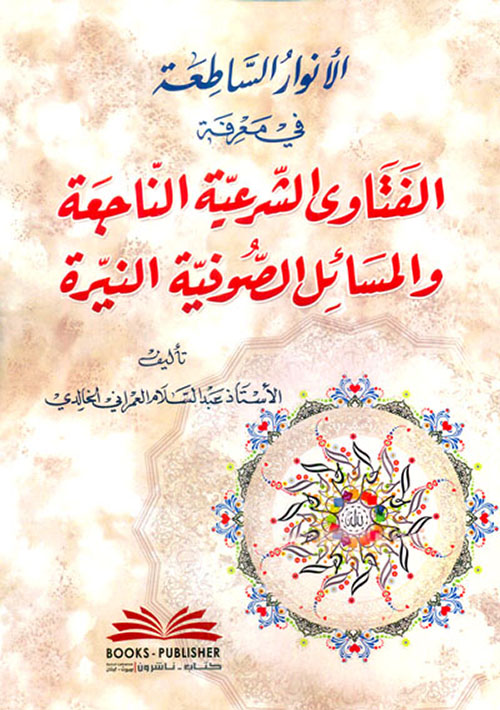 الأنوار السَّاطِعَة
في مَعْرِفَة
الفَتَاوى الشّرعيّة النّاجعَة
والمسَائِل الصُّوفيّة النيّرة
تأليف
الأستاذ عبد السلام العمراني الخالدي
الله
BOOKS - PUBLISHER
كتاب - ناشرون
بيروت - لبنان